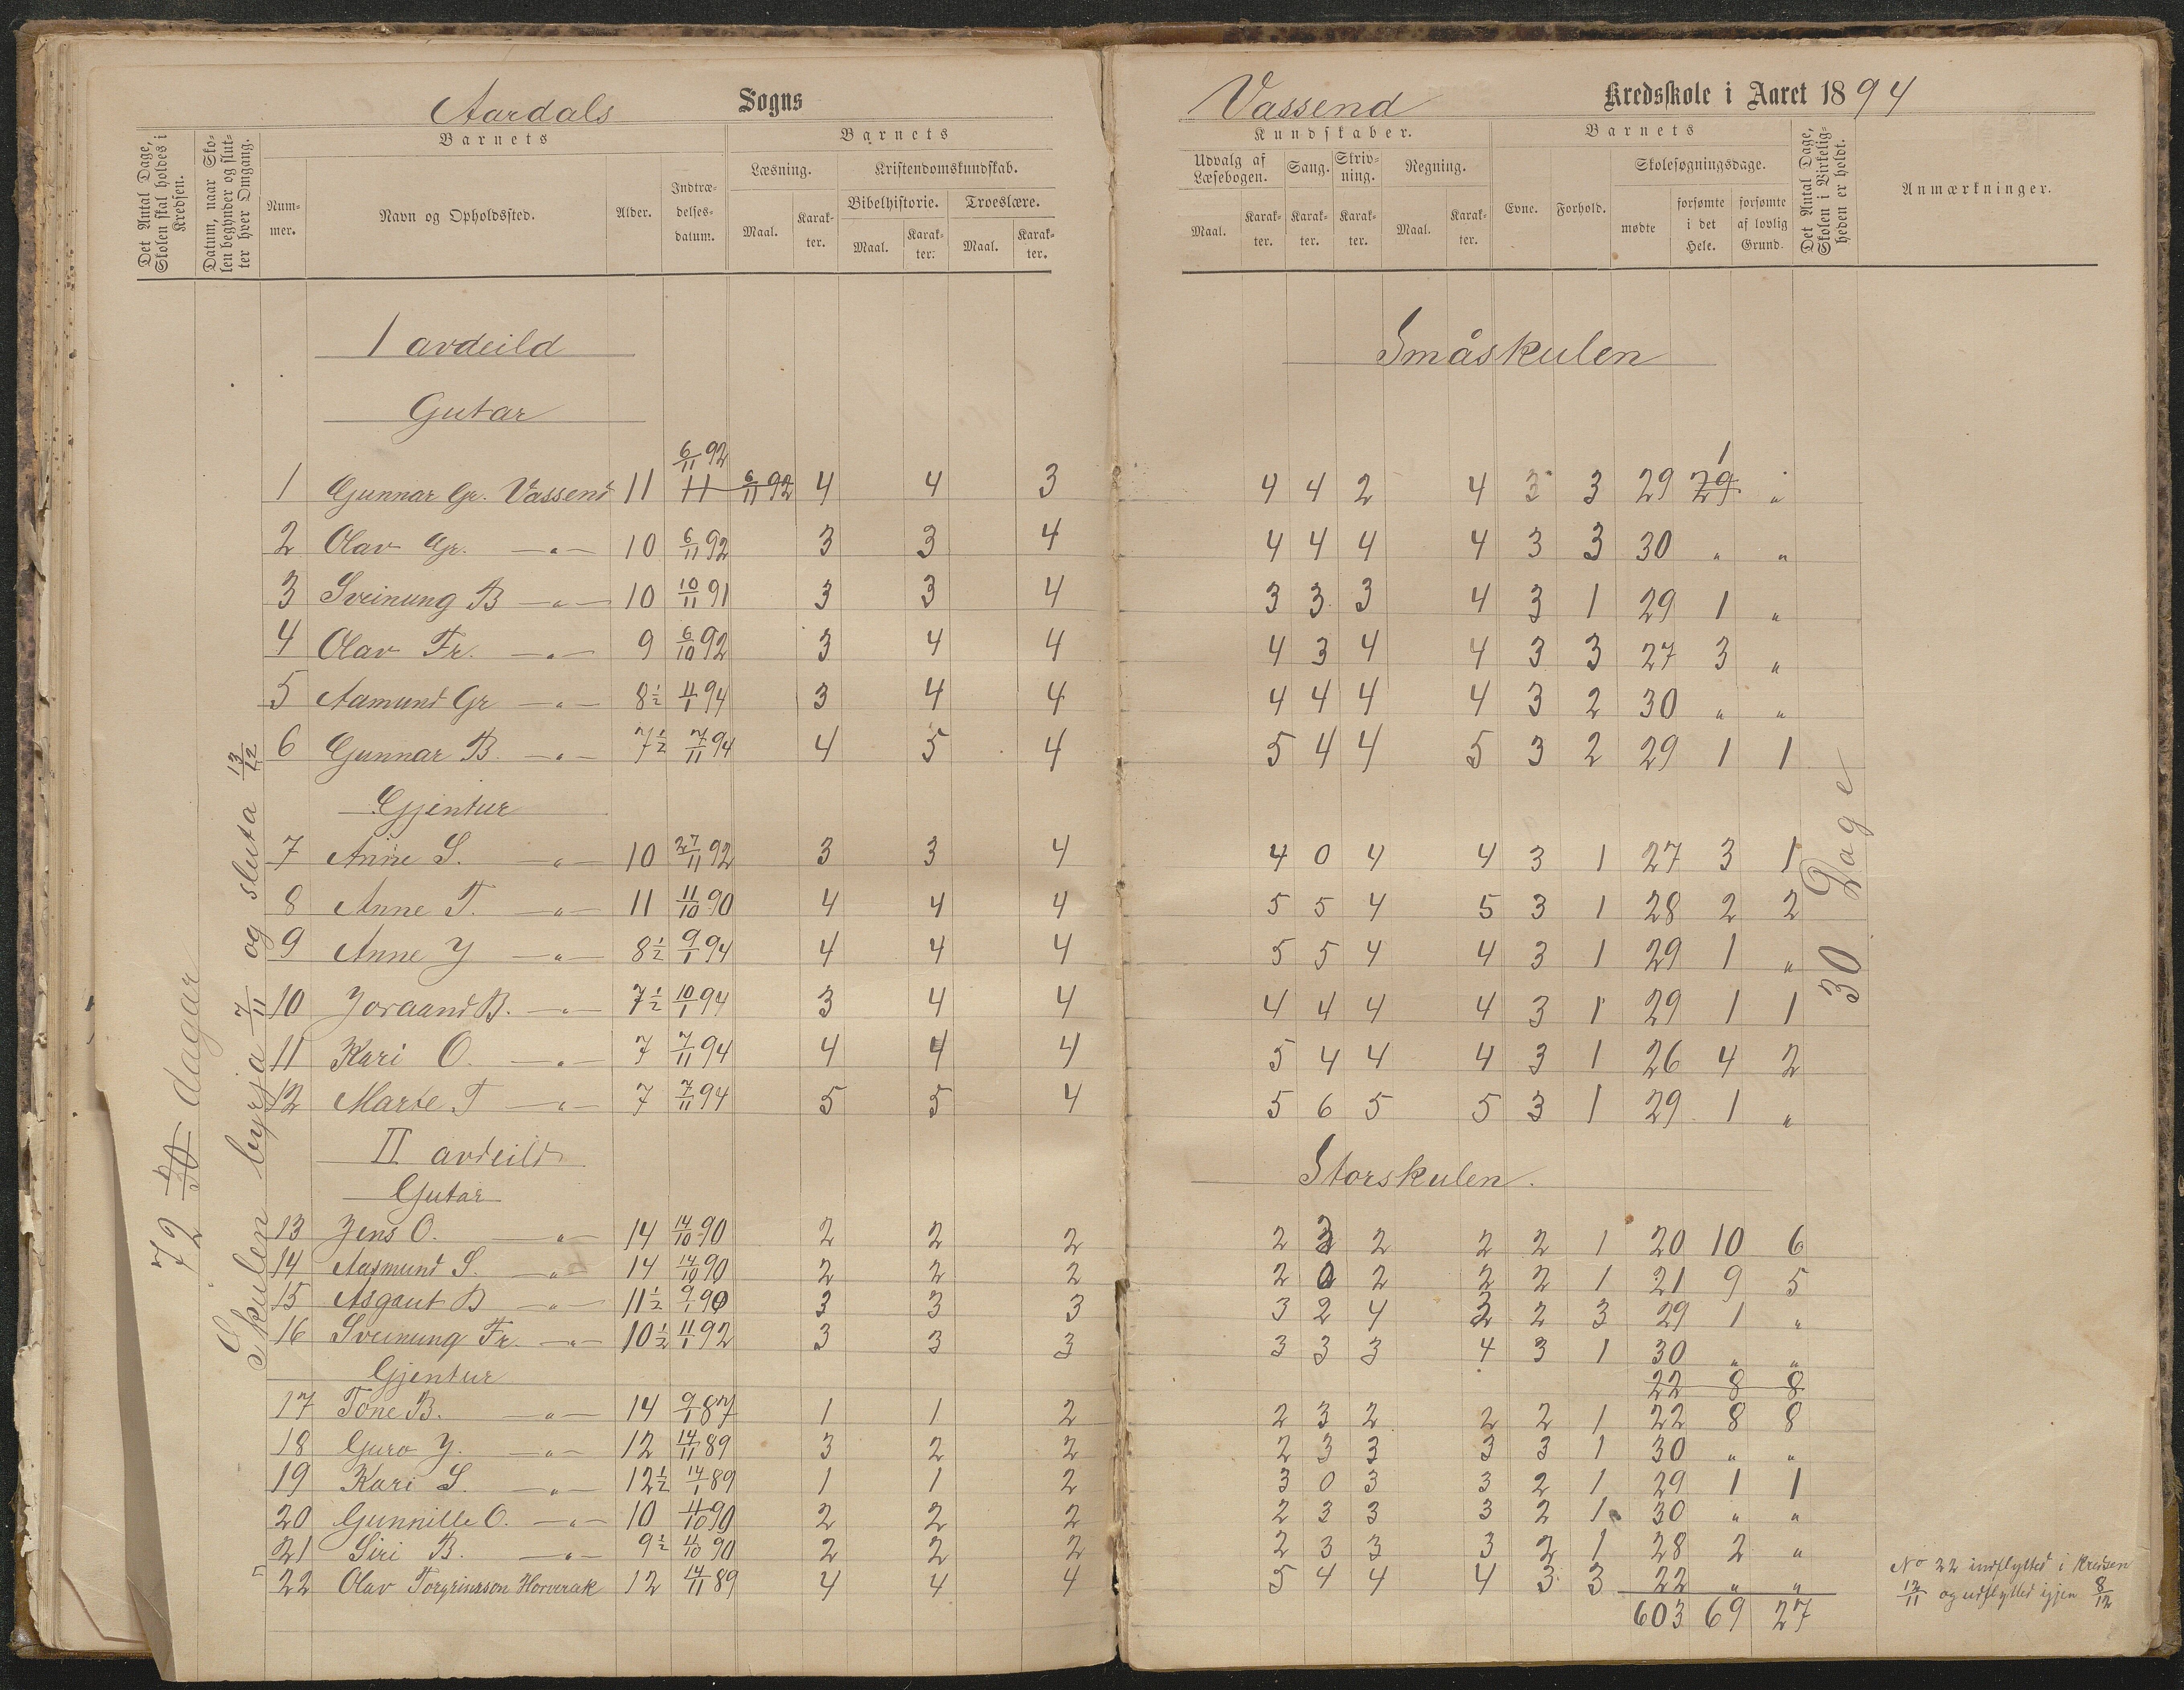 Aardals Sogns
Vassend Kredsskole i Aaret 1894
Det Antal Dage, Skolen skal holdes i Kredsen.
Datum, naar Skolen begynder og slutter hver Omgang.
Barnets
Nummer.
Navn og Opholdssted.
Alder.
Indtrædelsesdatum.
Barnets
Læsning.
Maal.
Karakter.
Kristendomskundskab.
Bibelhistorie.
Maal.
Karakter.
Troeslære.
Maal.
Karakter.
Kundskaber.
Udvalg af Læsebogen.
Maal.
Karakter.
Sang.
Karakter.
Skrivning.
Karakter.
Regning.
Maal.
Karakter.
Barnets
Evne.
Forhold.
Skolesøgningsdage.
mødte
forsømte i det Hele.
forsømte af lovlig Grund.
Det Antal Dage, Skolen i Virkeligheden er holdt.
Anmærkninger.
72 dagar
Skulen byrja 7/11 og sluta 13/12
30 Dage
I avdeild Småskulen
Gutar
1 Gunnar Gr. Vassend 11 6/11 92 11 6/11 92 4 4 3 4 4 2 4 3 3 29 29 1 "
2 Olav Gr. —"— 10 6/11 92 3 3 4 4 4 4 4 3 3 30 " "
3 Sveinung B —"— 10 10/11 91 3 3 4 3 3 3 4 3 1 29 1 "
4 Olav Fr. —"— 9 6/10 92 3 4 4 4 3 4 4 3 3 27 3 "
5 Aamund Gr —"— 8½ 11/1 94 3 4 4 4 4 4 4 3 2 30 " "
6 Gunnar B. —"— 7½ 7/11 94 4 5 4 5 4 4 5 3 2 29 1 1
Gjentur
7 Anne S. —"— 10 27/11 92 3 3 4 4 0 4 4 3 1 27 3 1
8 Anne T. —"— 11 11/10 90 4 4 4 5 5 4 5 3 1 28 2 2
9 Anne Y —"— 8½ 9/1 94 4 4 4 5 5 4 4 3 1 29 1 "
10 Joraand B. —"— 7½ 10/1 94 3 4 4 4 4 4 4 3 1 29 1 1
11 Kari O. —"— 7 7/11 94 4 4 4 5 4 4 4 3 1 26 4 2
12 Marte T —"— 7 7/11 94 5 5 4 5 6 5 5 3 1 29 1 "
II avdeild Storskulen.
Gutar
13 Jens O. —"— 14 14/10 90 2 2 2 2 3 2 2 2 1 20 10 6
14 Aasmund S. —"— 14 14/10 90 2 2 2 2 0 2 2 2 1 21 9 5
15 Asgaut B —"— 11½ 9/1 90 3 3 3 3 2 4 3 2 3 29 1 "
16 Sveinung Fr. —"— 10½ 11/1 92 3 3 3 3 3 3 4 3 1 30 " "
Gjentur 22 8 8
17 Tone B. —"— 14 9/1 87 1 1 2 2 3 2 2 2 1 22 8 8
18 Guro Y. —"— 12 14/11 89 3 2 2 2 3 3 3 3 1 30 " "
19 Kari S. —"— 12½ 14/1 89 1 1 2 3 0 3 3 2 1 29 1 1
20 Gunnille O. —"— 10 11/10 90 2 2 2 2 3 3 3 2 1 30 " "
21 Siri B. —"— 9½ 11/10 90 2 2 2 2 3 3 3 2 1 28 2 "
22 Olav 12 14/11 89 4 4 4 5 4 4 4 3 3 22 " "
603 69 27
No 22 indflyttet i Kredsen
12/11 og udflyttet igjen 8/12